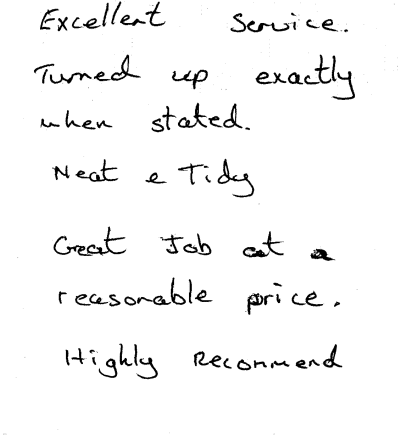 Excellent Service.
Turned up exactly
when stated.
Neat e Tidy
Great Job at a
reasonable price.
Highly Recommend